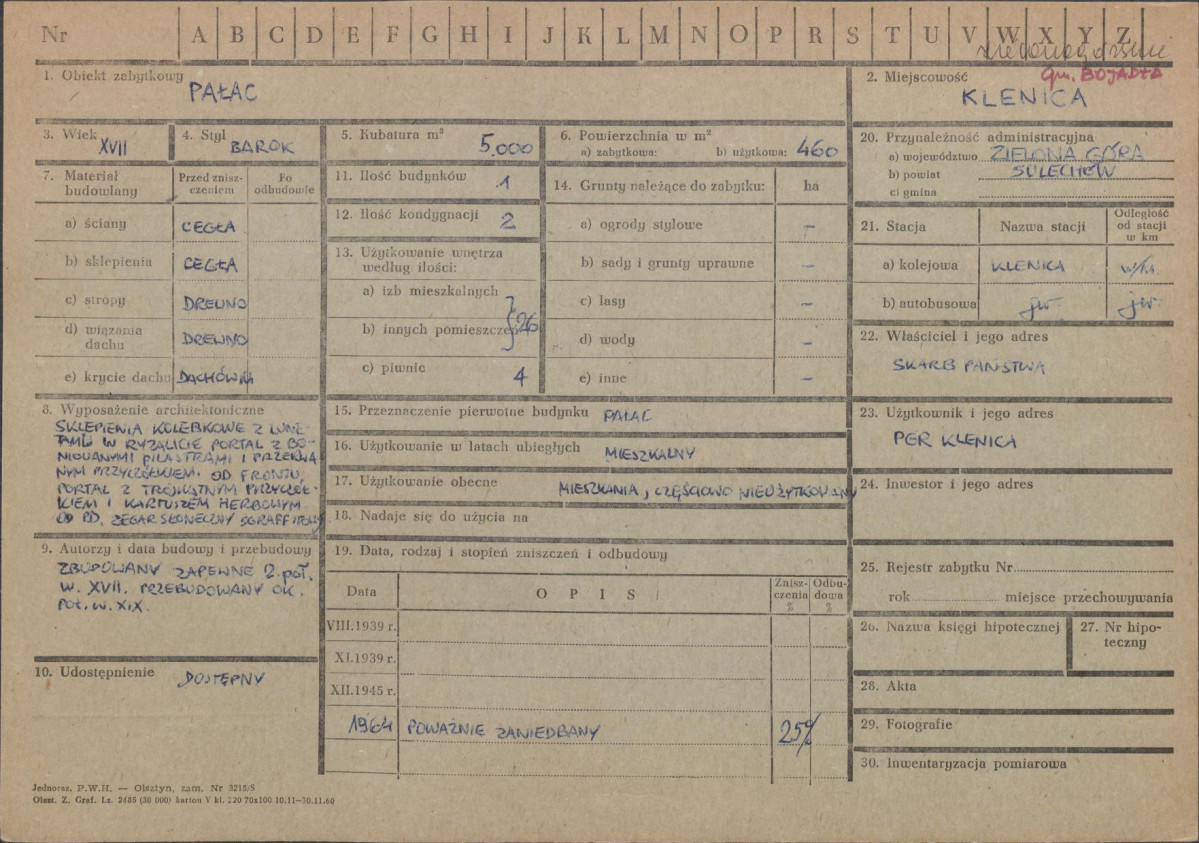 Nr A B C D E F G H I J K L M N O P R S T U V W X Y Z
zielonogórskie
1. Obiekt zabytkowy
PAŁAC
2. Miejscowość
Gm. BOJADŁA
KLENICA
3. Wiek
XVII
4. Styl
BAROK
5. Kubatura m³
5.000
6. Powierzchnia w m²
a) zabytkowa: b) użytkowa: 460
7. Materiał budowlany
Przed zniszczeniem
Po odbudowie
a) ściany CEGŁA
b) sklepienia CEGŁA
c) stropy DREWNO
d) wiązania dachu DREWNO
e) krycie dachu DACHÓWKA
8. Wyposażenie architektoniczne
SKLEPIENIA KOLEBKOWE Z LUNE-
TAMI W RYZALICIE PORTAL Z BO-
NIOWANYMI PILASTRAMI I PRZERWA
NYM PRZYCZÓŁKIEM. OD FRONTU,
PORTAL Z TRÓJKĄTNYM PRZYCZÓŁ-
KIEM I KARTUSZEM HERBOWYM
OD PD. ZEGAR SŁONECZNY SGRAFFITOWY
9. Autorzy i data budowy i przebudowy
ZBUDOWANY ZAPEWNE 2. poł.
W. XVII. PRZEBUDOWANY OK.
POŁ. W. XIX.
10. Udostępnienie
DOSTĘPNY
11. Ilość budynków 1
12. Ilość kondygnacji 2
13. Użytkowanie wnętrza
według ilości:
a) izb mieszkalnych
b) innych pomieszczeń
} 26
c) piwnic 4
14. Grunty należące do zabytku: ha
a) ogrody stylowe –
b) sady i grunty uprawne –
c) lasy –
d) wody –
e) inne –
15. Przeznaczenie pierwotne budynku PAŁAC
16. Użytkowanie w latach ubiegłych MIESZKALNY
17. Użytkowanie obecne MIESZKANIA, CZĘŚCIOWO NIEUŻYTKOWANY
18. Nadaje się do użycia na
19. Data, rodzaj i stopień zniszczeń i odbudowy
Data O P I S Zniszczenia % Odbudowa %
VIII.1939 r.
XI.1939 r.
XII.1945 r.
1964 POWAŻNIE ZANIEDBANY 25%
20. Przynależność administracyjna
a) województwo ZIELONA GÓRA
b) powiat SULECHÓW
c) gmina
21. Stacja Nazwa stacji Odległość od stacji w km
a) kolejowa KLENICA w/m.
b) autobusowa jw. jw.
22. Właściciel i jego adres
SKARB PAŃSTWA
23. Użytkownik i jego adres
PGR KLENICA
24. Inwestor i jego adres
25. Rejestr zabytku Nr
rok miejsce przechowywania
26. Nazwa księgi hipotecznej
27. Nr hipo-
teczny
28. Akta
29. Fotografie
30. Inwentaryzacja pomiarowa
Jednoraz. P.W.H. — Olsztyn, zam. Nr 3215/S
Olszt. Z. Graf. Lz. 2485 (30 000) karton V kl. 220 70x100 10.11—30.11.60